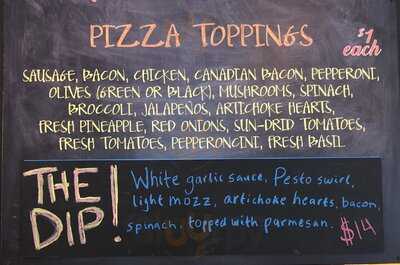 PIZZA TOPPINGS
$1
each
SAUSAGE, BACON, CHICKEN, CANADIAN BACON, PEPPERONI,
OLIVES (GREEN OR BLACK), MUSHROOMS, SPINACH,
BROCCOLI, JALAPEÑOS, ARTICHOKE HEARTS,
FRESH PINEAPPLE, RED ONIONS, SUN-DRID TOMATOES,
FRESH TOMATOES, PEPPERONCINI, FRESH BASIL
THE
DIP!
White garlic sauce, Pesto swirl,
light mozz, artichoke hearts, bacon,
spinach, topped with parmesan.
$14